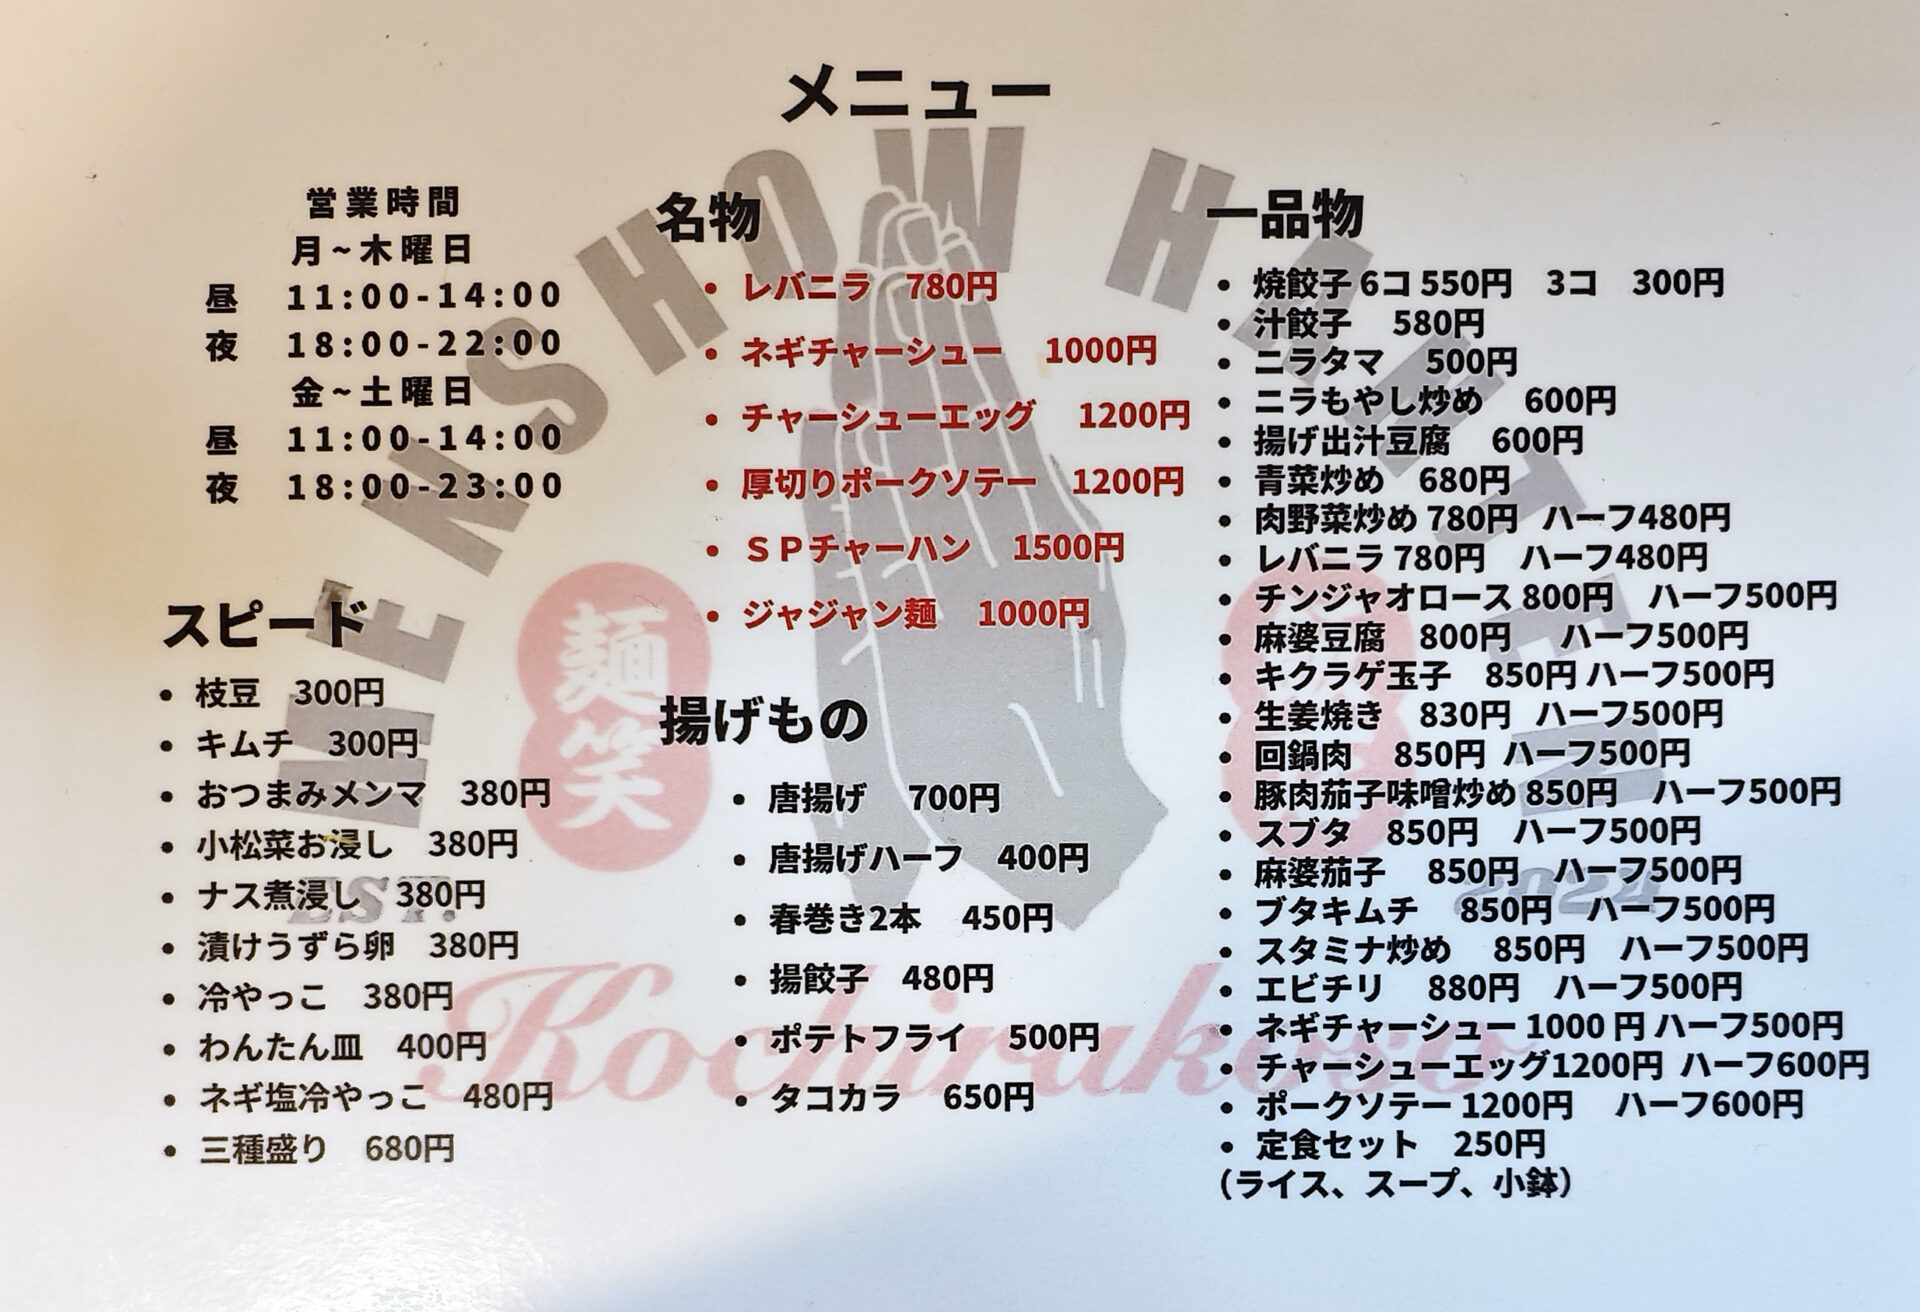 メニュー
営業時間
月~木曜日
昼 11:00-14:00
夜 18:00-22:00
金~土曜日
昼 11:00-14:00
夜 18:00-23:00
スピード
• 枝豆 300円
• キムチ 300円
• おつまみメンマ 380円
• 小松菜お浸し 380円
• ナス煮浸し 380円
• 漬けうずら卵 380円
• 冷やっこ 380円
• わんたん皿 400円
• ネギ塩冷やっこ 480円
• 三種盛り 680円
名物
• レバニラ 780円
• ネギチャーシュー 1000円
• チャーシューエッグ 1200円
• 厚切りポークソテー 1200円
• ＳＰチャーハン 1500円
• ジャジャン麺 1000円
揚げもの
• 唐揚げ 700円
• 唐揚げハーフ 400円
• 春巻き2本 450円
• 揚餃子 480円
• ポテトフライ 500円
• タコカラ 650円
一品物
• 焼餃子 6コ 550円 3コ 300円
• 汁餃子 580円
• ニラタマ 500円
• ニラもやし炒め 600円
• 揚げ出汁豆腐 600円
• 青菜炒め 680円
• 肉野菜炒め 780円 ハーフ480円
• レバニラ 780円 ハーフ480円
• チンジャオロース 800円 ハーフ500円
• 麻婆豆腐 800円 ハーフ500円
• キクラゲ玉子 850円 ハーフ500円
• 生姜焼き 830円 ハーフ500円
• 回鍋肉 850円 ハーフ500円
• 豚肉茄子味噌炒め 850円 ハーフ500円
• スブタ 850円 ハーフ500円
• 麻婆茄子 850円 ハーフ500円
• ブタキムチ 850円 ハーフ500円
• スタミナ炒め 850円 ハーフ500円
• エビチリ 880円 ハーフ500円
• ネギチャーシュー 1000 円 ハーフ500円
• チャーシューエッグ1200円 ハーフ600円
• ポークソテー 1200円 ハーフ600円
• 定食セット 250円
（ライス、スープ、小鉢）
MENSHOW HANTEN
麺笑
EST.
2024
Kochirakoso